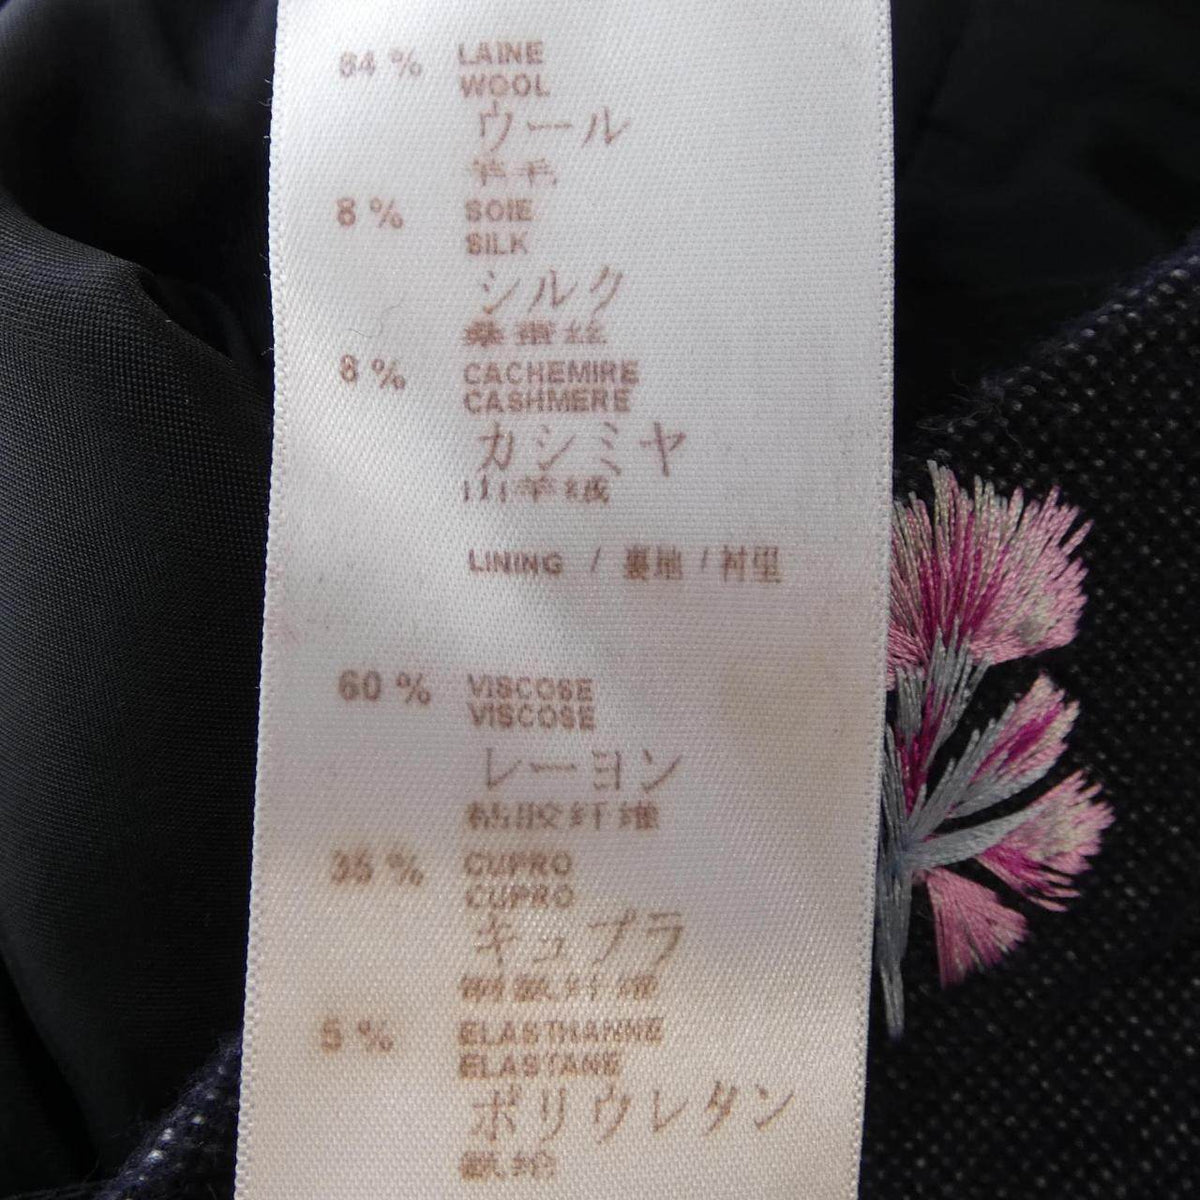 84 % LAINE
WOOL
ウール
羊毛
8 % SOIE
SILK
シルク
桑蚕丝
8 % CACHEMIRE
CASHMERE
カシミヤ
山羊绒
LINING / 裏地 / 衬里
60 % VISCOSE
VISCOSE
レーヨン
粘胶纤维
35 % CUPRO
CUPRO
キュプラ
铜氨纤维
5 % ELASTHANNE
ELASTANE
ポリウレタン
氨纶